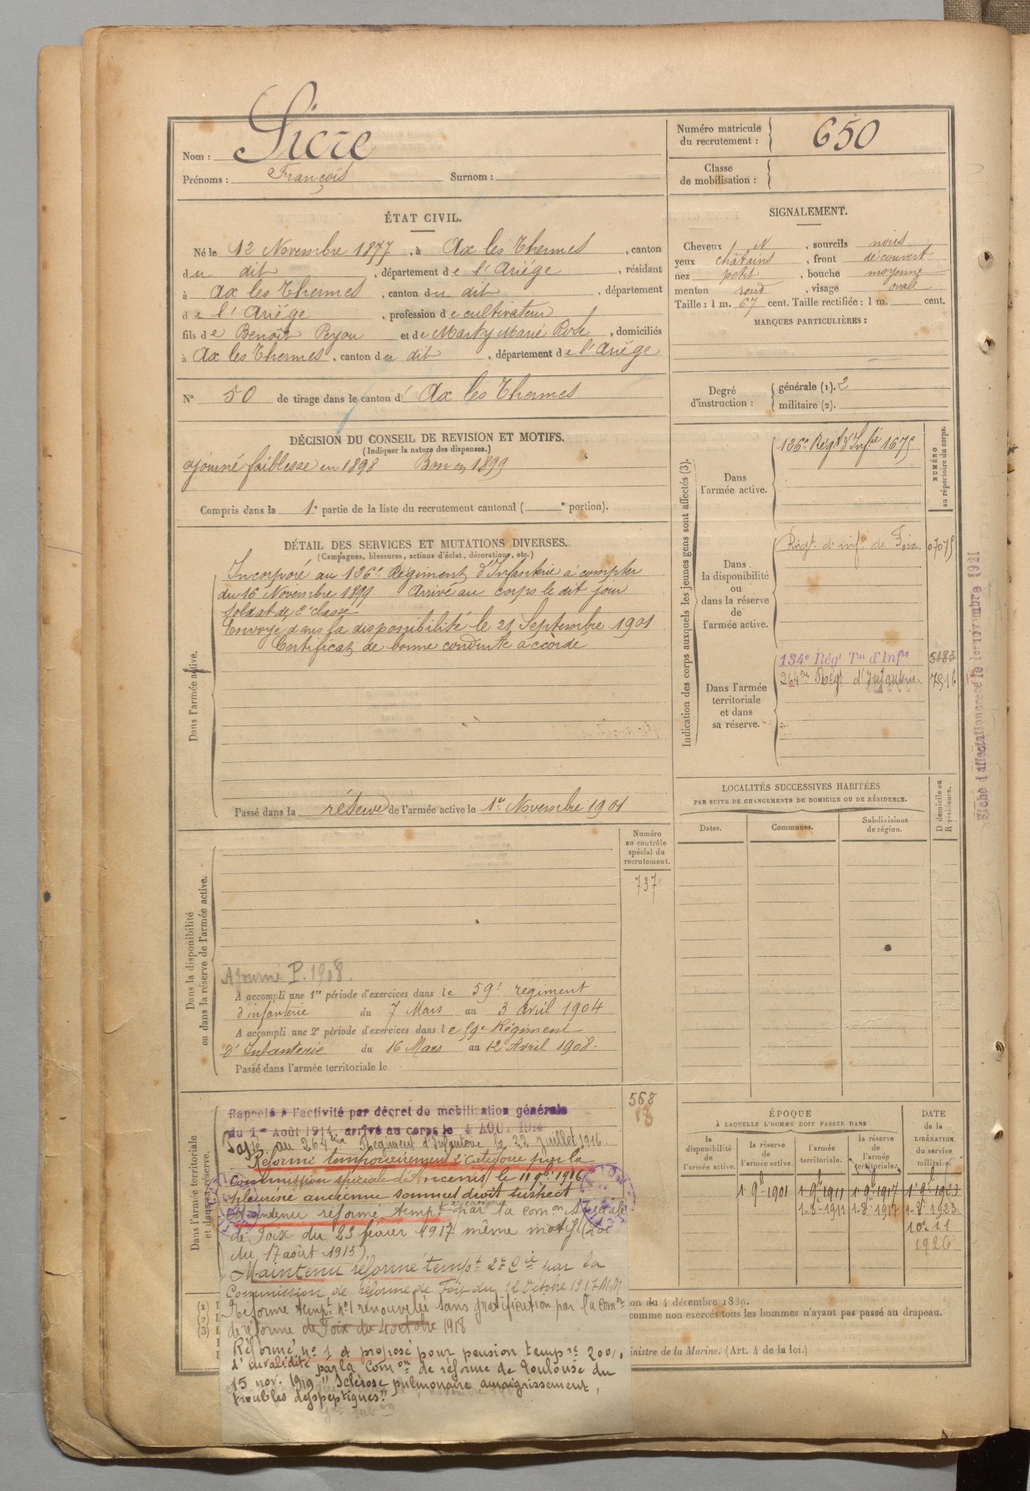 Nom : Sicre
Prénoms : François Surnom :
Numéro matricule du recrutement : 650
Classe de mobilisation :
ÉTAT CIVIL.
Né le 12 Novembre 1877, à Ax les Thermes, canton
du dit, département de l'Ariège, résidant
à Ax les Thermes, canton du dit, département
de l'Ariège, profession de cultivateur
fils de Benoît Peyou et de Marty Marie Rose, domiciliés
à Ax les Thermes, canton du dit, département de l'Ariège
N° 50 de tirage dans le canton d' Ax les Thermes
SIGNALEMENT.
Cheveux N, sourcils noirs
yeux châtains, front découvert
nez petit, bouche moyenne
menton rond, visage ovale
Taille : 1 m. 67 cent. Taille rectifiée : 1 m. cent.
MARQUES PARTICULIÈRES :
Degré d'instruction : générale (1). 2
militaire (2).
DÉCISION DU CONSEIL DE REVISION ET MOTIFS.
(Indiquer la nature des dispenses.)
ajourné faiblesse en 1898 Bon en 1899
Compris dans la 1e partie de la liste du recrutement cantonal ( e portion).
DÉTAIL DES SERVICES ET MUTATIONS DIVERSES.
(Campagnes, blessures, actions d'éclat, décorations, etc.)
Dans l'armée active.
Incorporé au 126e Régiment d'Infanterie à compter
du 16 Novembre 1899 Arrivé au corps le dit jour
Soldat de 2e classe
Envoyé dans la disponibilité le 21 Septembre 1901
Certificat de bonne conduite accordé
Passé dans la réserve de l'armée active le 1er Novembre 1901
Indication des corps auxquels les jeunes gens sont affectés (3).
NUMÉRO au répertoire du corps.
Dans l'armée active.
126e Régt d'Infie 1675
Dans la disponibilité ou dans la réserve de l'armée active.
Régt d'infie de Foix 07075
Dans l'armée territoriale et dans sa réserve.
134e Rég Tal d'Infie 5183
264me Régt d'Infanterie 7516
LOCALITÉS SUCCESSIVES HABITÉES
PAR SUITE DE CHANGEMENTS DE DOMICILE OU DE RÉSIDENCE.
Dates. Communes. Subdivisions de région. D domicile ou R résidence.
Numéro au contrôle spécial du recrutement.
737
Dans la disponibilité ou dans la réserve de l'armée active.
Ajourné P. 1908.
A accompli une 1re période d'exercices dans le 59e régiment
d'infanterie du 7 Mars au 3 avril 1904
A accompli une 2e période d'exercices dans le 59e Régiment
d'Infanterie du 16 Mars au 12 Avril 1908.
Passé dans l'armée territoriale le
568
Dans l'armée territoriale et dans sa réserve.
Rappelé à l'activité par décret de mobilisation générale
du 1er Août 1914, arrivé au corps le 4 AOUT 1914
Passé au 264me Régiment d'Infanterie le 22 juillet 1916.
Réformé temporairement 2e Catégorie par la
Commission spéciale d'Ancenis le 11 9bre 1916
pleurésie ancienne sommet droit suspect
réformé tempre par la comon spéciale
de Foix du 23 février 1917 même motif (loi
du 17 août 1915).
Maintenu réformé tempt 2e Cie par la
Commission de réforme de Foix du 12 Octobre 1917
Réformé tempt n°1 renouvelée sans gratification par la Comon
de réforme de Foix du 4 octobre 1918
Réformé n° 1 et proposé pour pension tempre 20 0/0
d'invalidité par la Comon de réforme de Toulouse du
15 nov. 1919 "Sclérose pulmonaire amaigrissement,
troubles dyspeptiques".
ÉPOQUE
À LAQUELLE L'HOMME DOIT PASSER DANS
la disponibilité de l'armée active. la réserve de l'armée active. l'armée territoriale. la réserve de l'armée territoriale.
DATE de la LIBÉRATION du service militaire.
1 9bre 1901 1 9bre 1911 1 9bre 1917 1 9bre 1923
1-8-1911 1-8-1917 1-8-1923
10-11
1926
Fiche d'affectation créée le 1er novembre 1921
(1)
(2)
(3)
ion du 4 décembre 1889.
comme non exercés tous les hommes n'ayant pas passé au drapeau.
inistre de la Marine. (Art. 4 de la loi.)